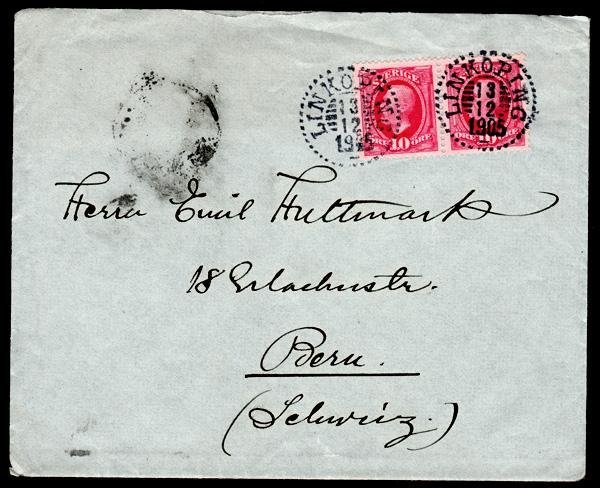 LINKÖPING
13
12
1905
LINKÖPING
13
12
1905
SVERIGE
ÖRE 10 ÖRE
ÖRE 10 ÖRE
Herrn Emil Hultmark
18 Erlachstr.
Bern.
(Schweiz.)